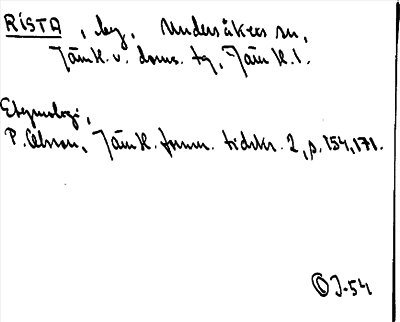 RISTA, by, Undersåkers sn,
Jämtl. v. doms. tg, Jämtl. l.
Etymologi,
P. Olsson, Jämtl. fornm. tidskr. 2, p. 154, 171.
OJ-54